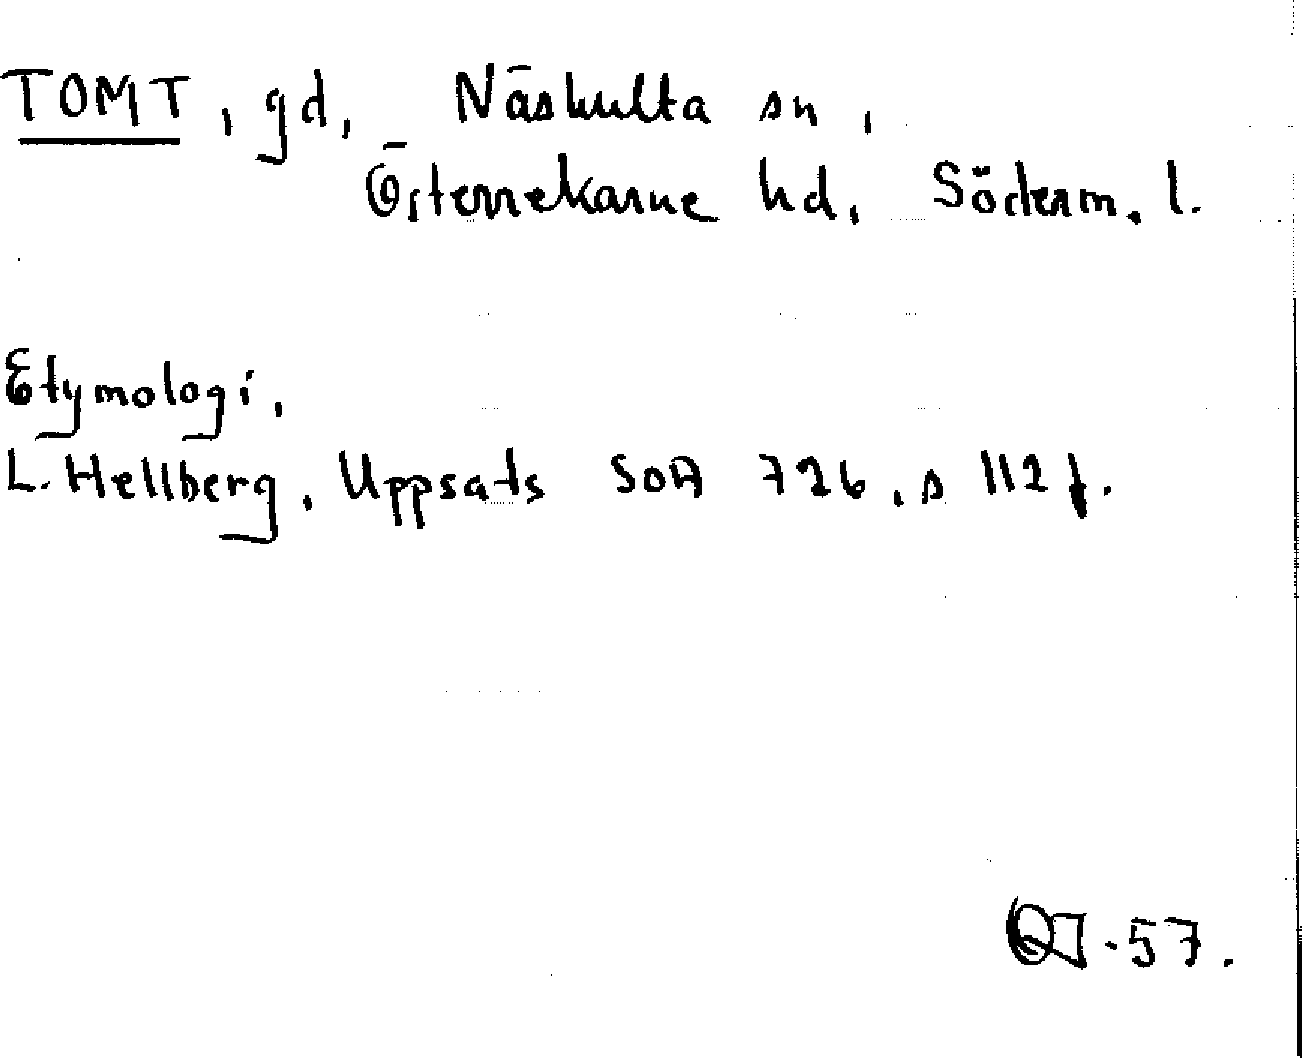 TOMT, gd, Näshulta sn,
Österrekarne hd, Söderm. l.
Etymologi,
L. Hellberg, Uppsats SOA 726, s 112 f.
57.